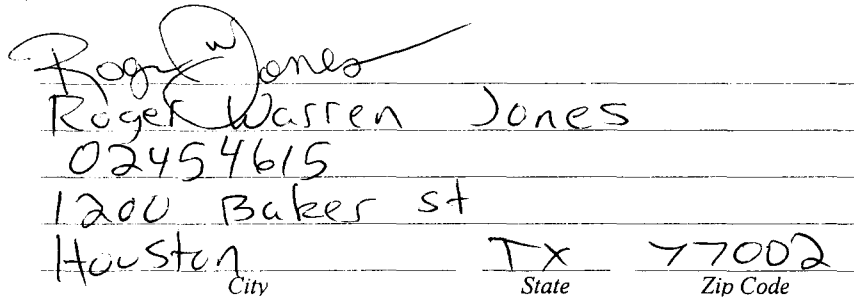 Roger W Jones
Roger Warren Jones
02454615
1200 Baker st
Houston TX 77002
City State Zip Code